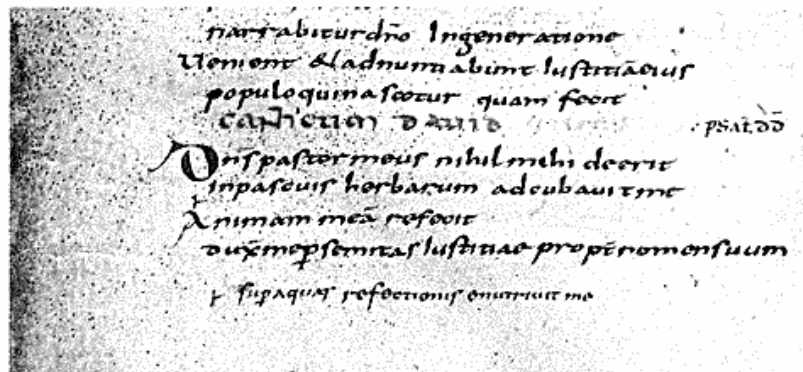 narrabitur dño Ingeneratione
Uenient &adnuntiabunt Iustitiãeius
populoquinascetur quam fecit
canticum dauid
psal. dd̄
Dñspastormeus nihilmihi deerit
inpascuis herbarum adcubauitme
Animam meã refecit
duxitmeper semitas Iustitiae propt̃nomensuum
supaquas refectionis enutriuit me